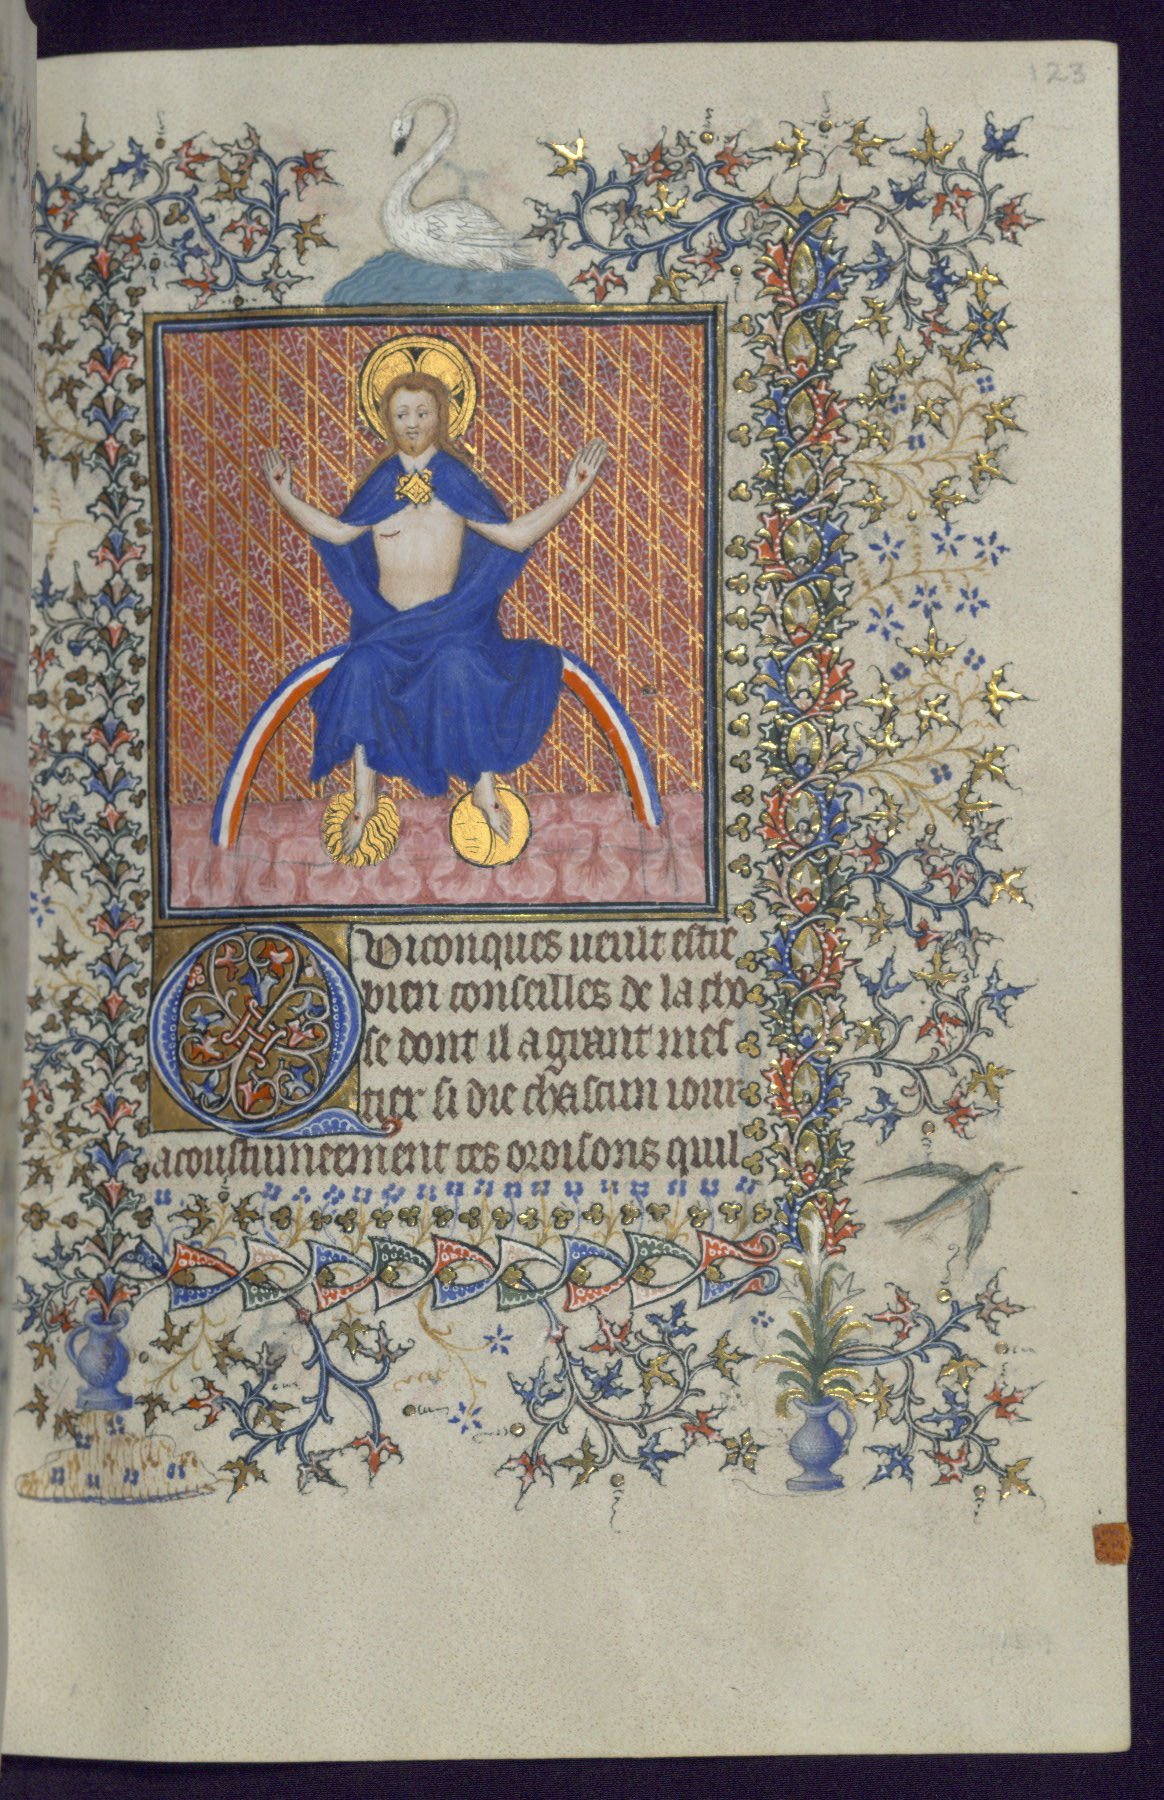 123
Quiconques ueult estre
bien conseilles de la cho
se dont il a grant mes
tier si die chascun iour
acoustumeement ces oroisons quil